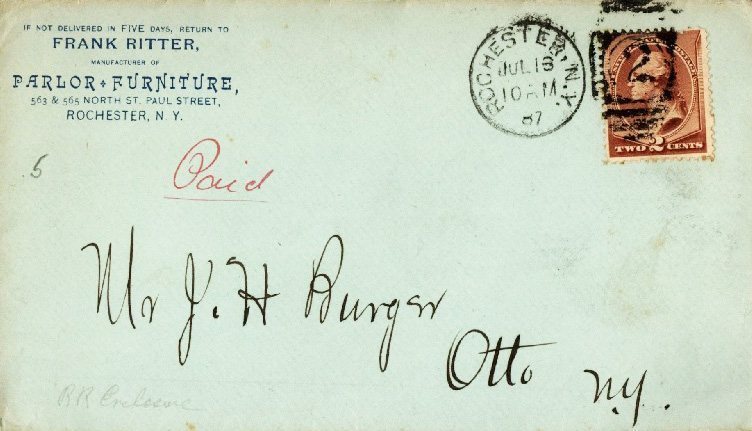 IF NOT DELIVERED IN FIVE DAYS, RETURN TO
FRANK RITTER,
MANUFACTURER OF
PARLOR + FURNITURE,
563 & 565 NORTH ST. PAUL STREET,
ROCHESTER, N. Y.
ROCHESTER, N.Y.
JUL 16
10 AM
87
2
TWO 2 CENTS
5
Paid
Mr J. H Burger
Otto N.Y.
RR